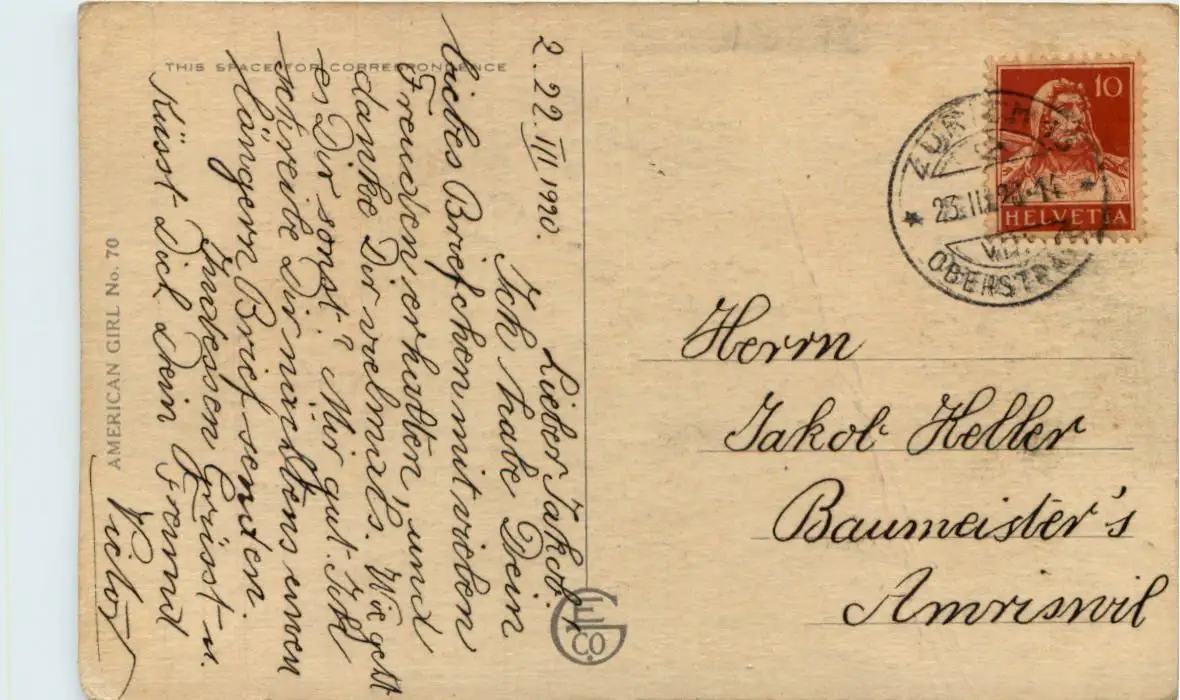 THIS SPACE FOR CORRESPONDENCE
2. 22. III 1920.
Lieber Jakob!
Ich habe Dein
liebes Briefchen mit vielen
Freuden erhalten, und
danke Dir vielmals. Wie geht
es Dir sonst? Mir gut. Ich
schreibe Dir nächstens einen
längern Brief senden.
Indessen Grüsst u.
Küsst Dich Dein Freund
Victor
AMERICAN GIRL No. 70
CO
10
HELVETIA
ZÜRICH
23. III. 20-14
OBERSTRASS
Herrn
Jakob Heller
Baumeister's
Amriswil